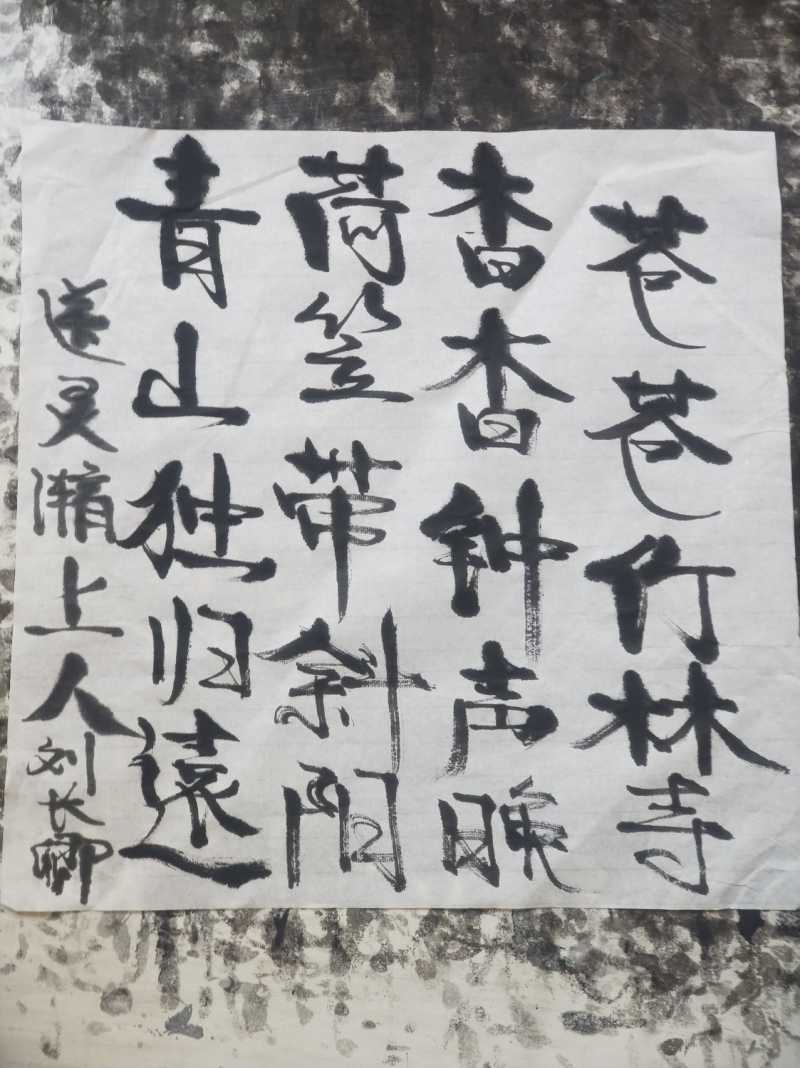 苍苍竹林寺
杳杳钟声晚
荷笠带斜阳
青山独归遠
送灵澈上人 刘长卿